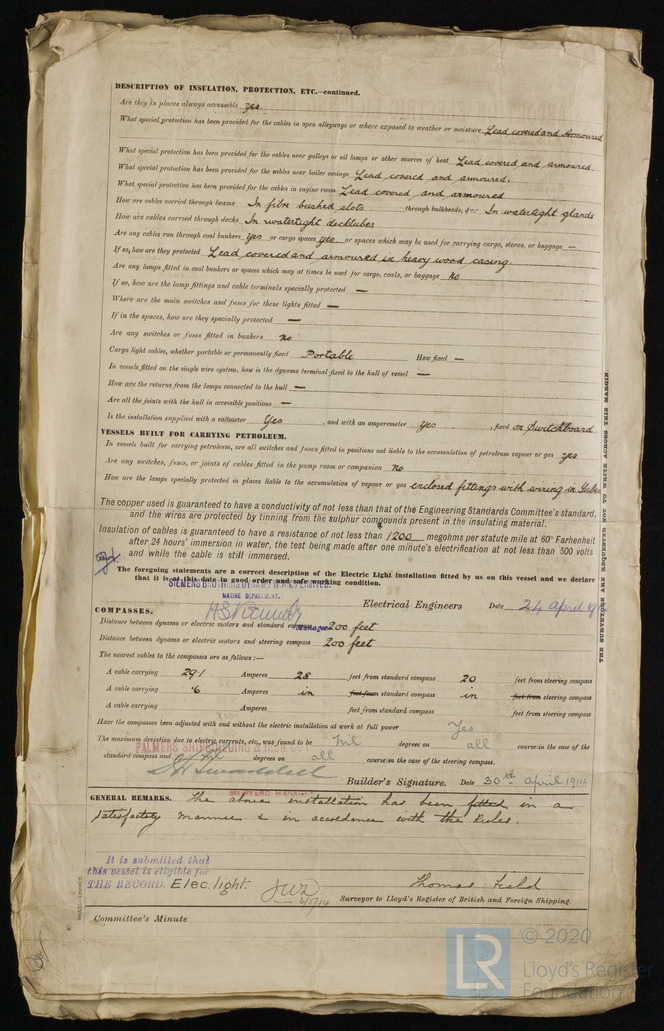 DESCRIPTION OF INSULATION, PROTECTION, ETC.—continued.
Are they in places always accessible yes.
What special protection has been provided for the cables in open alleyways or where exposed to weather or moisture Lead covered and Armoured
What special protection has been provided for the cables near galleys or oil lamps or other sources of heat Lead covered and armoured.
What special protection has been provided for the cables near boiler casings Lead covered and armoured.
What special protection has been provided for the cables in engine room Lead covered and armoured
How are cables carried through beams In fibre bushed slots through bulkheads, &c. In watertight glands
How are cables carried through decks In watertight decktubes
Are any cables run through coal bunkers yes or cargo spaces yes or spaces which may be used for carrying cargo, stores, or baggage —
If so, how are they protected Lead covered and armoured in heavy wood casing.
Are any lamps fitted in coal bunkers or spaces which may at times be used for cargo, coals, or baggage no
If so, how are the lamp fittings and cable terminals specially protected —
Where are the main switches and fuses for these lights fitted —
If in the spaces, how are they specially protected —
Are any switches or fuses fitted in bunkers no
Cargo light cables, whether portable or permanently fixed Portable How fixed —
In vessels fitted on the single wire system, how is the dynamo terminal fixed to the hull of vessel —
How are the returns from the lamps connected to the hull —
Are all the joints with the hull in accessible positions —
Is the installation supplied with a voltmeter Yes , and with an amperemeter yes , fixed on Switchboard
VESSELS BUILT FOR CARRYING PETROLEUM.
In vessels built for carrying petroleum, are all switches and fuses fitted in positions not liable to the accumulation of petroleum vapour or gas yes
Are any switches, fuses, or joints of cables fitted in the pump room or companion no
How are the lamps specially protected in places liable to the accumulation of vapour or gas enclosed fittings with wiring in Tubes
The copper used is guaranteed to have a conductivity of not less than that of the Engineering Standards Committee's standard,
and the wires are protected by tinning from the sulphur compounds present in the insulating material.
Insulation of cables is guaranteed to have a resistance of not less than 1200 megohms per statute mile at 60° Farhenheit
after 24 hours' immersion in water, the test being made after one minute's electrification at not less than 500 volts
and while the cable is still immersed.
The foregoing statements are a correct description of the Electric Light installation fitted by us on this vessel and we declare
that it is at this date in good order and safe working condition.
SIEMENS BROTHERS DYNAMO WORKS LIMITED.
MARINE DEPARTMENT.
Electrical Engineers Date 24 April
Manager
COMPASSES.
Distance between dynamo or electric motors and standard compass 200 feet
Distance between dynamo or electric motors and steering compass 200 feet
The nearest cables to the compasses are as follows:—
A cable carrying 29.1 Amperes 28 feet from standard compass 20 feet from steering compass
A cable carrying .6 Amperes in feet from standard compass in feet from steering compass
A cable carrying Amperes feet from standard compass feet from steering compass
Have the compasses been adjusted with and without the electric installation at work at full power Yes
The maximum deviation due to electric currents, etc., was found to be nil degrees on all course in the case of the
standard compass and nil degrees on all course in the case of the steering compass.
PALMERS SHIPBUILDING & IRON
SHIPYARD MANAGER
Builder's Signature. Date 30th April 1914
GENERAL REMARKS. The above installation has been fitted in a
satisfactory manner & in accordance with the Rules.
It is submitted that
this vessel is eligible for
THE RECORD. Elec. light.
JWD
6/5/14
Thomas Field
Surveyor to Lloyd's Register of British and Foreign Shipping.
Committee's Minute
THE SURVEYORS ARE REQUESTED NOT TO WRITE ACROSS THIS MARGIN
LR
© 2020
Lloyd's Register
Foundation